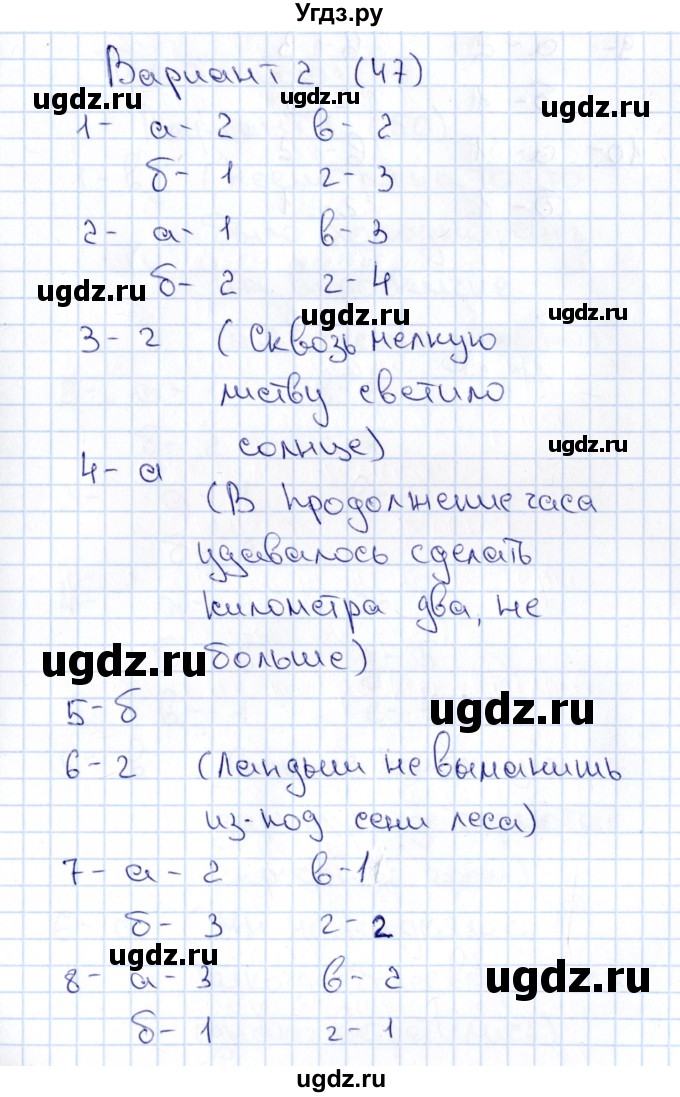 Угдз.ру
Вариант 2 (47)
ugdz.ru ugdz.ru ugdz.ru
1- а- 2 в- 2
б- 1 г- 3
2- а- 1 в- 3
б- 2 г- 4
ugdz.ru ugdz.ru ugdz.ru
3- г (Сквозь мелкую
листву светило
солнце)
ugdz.ru
4- а
(В продолжение часа
удавалось сделать
километра два, не
больше)
ugdz.ru ugdz.ru
5- б
6- г (Ландыш не выманишь
из-под сени леса)
7- а- 2 в- 1
б- 3 г- 2
ugdz.ru ugdz.ru
8- а- 3 в- 2
б- 1 г- 1
ugdz.ru